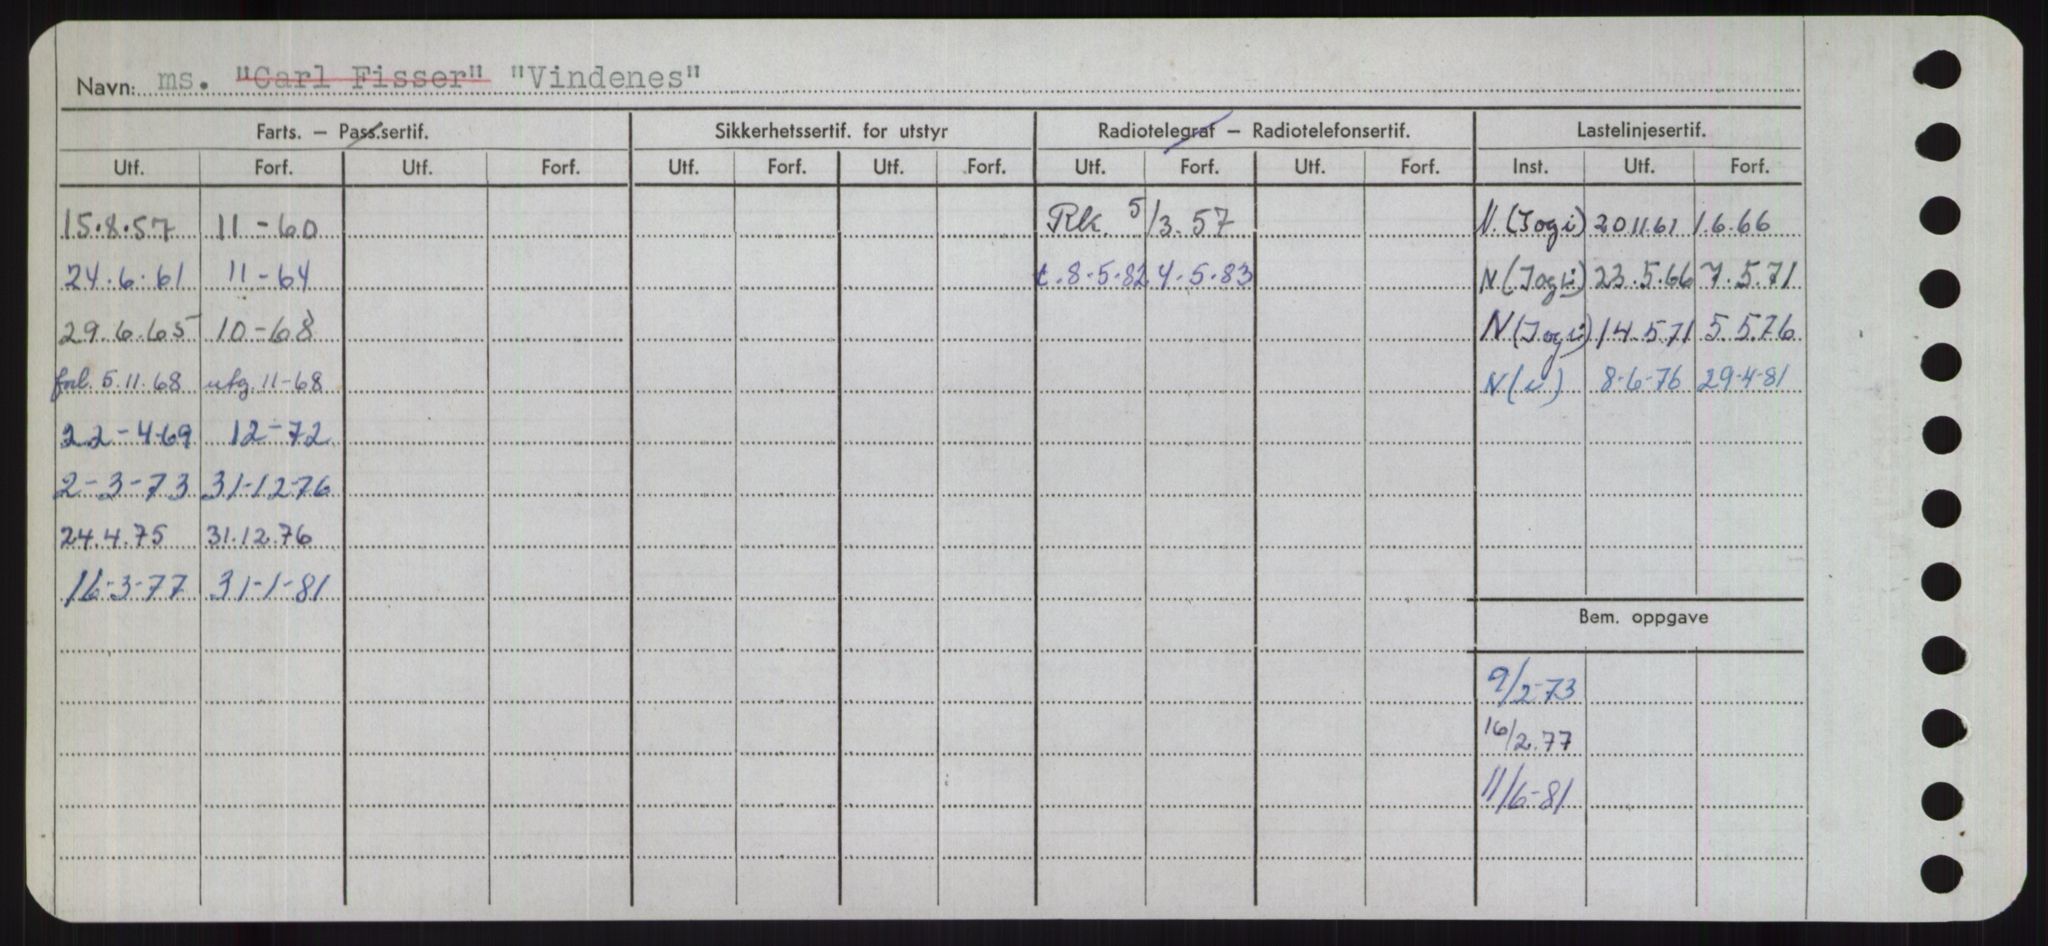 Navn: ms. "Carl Fisser" "Vindenes"
Farts. – Pass.sertif. Sikkerhetssertif. for utstyr Radiotelegraf – Radiotelefonsertif. Lastelinjesertif.
Utf. Forf. Utf. Forf. Utf. Forf. Utf. Forf. Utf. Forf. Utf. Forf. Inst. Utf. Forf.
15.8.57 11-60 Rk. 5/3.57 N.(Jogi) 20.11.61 1.6.66
24.6.61 11-64 t.8-5-82 4-5-83 N(Jogi) 23.5.66 7.5.71
29.6.65 10-68 N(Jogi) 14.5.71 5.5.76
forl. 5.11.68 utg. 11-68 N( ) 8-6-76 29-4-81
22-4-69 12-72
2-3-73 31-12-76
24.4.75 31.12.76
16-3-77 31-1-81
Bem. oppgave
9/2-73
16/2.77
11/6-81